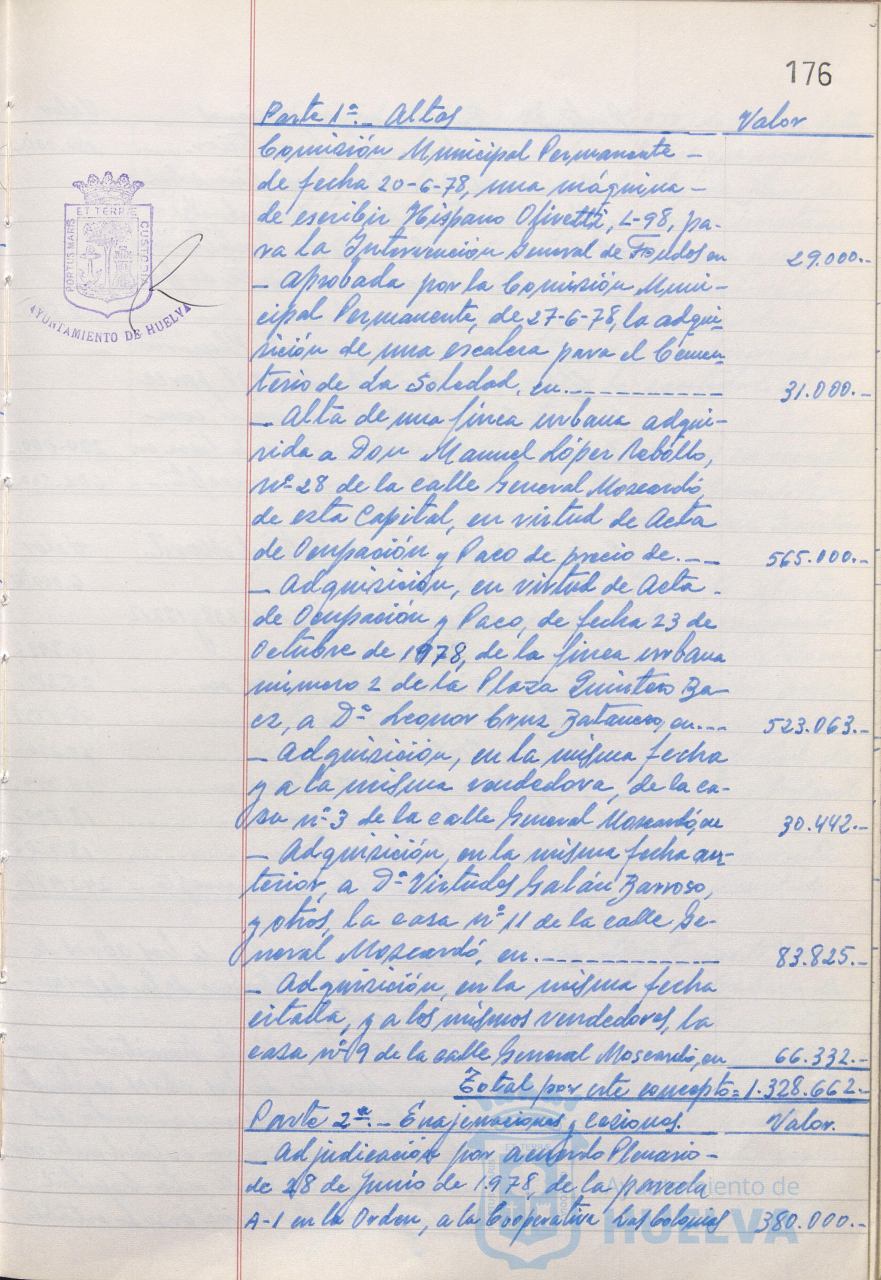 176
Parte 1ª.- Altas Valor
Comisión Municipal Permanente -
de fecha 20-6-78, una máquina -
de escribir Hispano Olivetti, L-98, pa-
ra la Intervención General de Fondos en 29.000.-
- Aprobada por la Comisión Muni-
cipal Permanente, de 27-6-78, la adqui-
sición de una escalera para el Cemen-
terio de La Soledad, en.---------- 31.000.-
- Alta de una finca urbana adqui-
rida a Don Manuel López Rebollo,
nº 28 de la calle General Moscardó,
de esta Capital, en virtud de Acta
de Ocupación y Paco de precio de.-- 565.000.-
- Adquisición, en virtud de Acta -
de Ocupación y Paco, de fecha 23 de
Octubre de 1978, de la finca urbana
número 2 de la Plaza Quintero Ba-
ez, a Dª Leonor Cruz en.--- 523.063.-
- Adquisición, en la misma fecha
y a la misma vendedora, de la ca-
sa nº 3 de la calle General Moscardó, en 30.442.-
- Adquisición, en la misma fecha an-
terior, a Dª Virtudes Galán Barroso,
y otros, la casa nº 11 de la calle Ge-
neral Moscardó, en.------------- 83.825.-
- Adquisición, en la misma fecha
citada, y a los mismos vendedores, la
casa nº 9 de la calle General Moscardó, en 66.332.-
Total por este concepto= 1.328.662.-
Parte 2ª.- Enajenaciones y cesiones. Valor.
- Adjudicación por acuerdo Plenario -
de 28 de Junio de 1978, de la parcela
A-1 en la Orden, a la Cooperativa Las Colonias 380.000.-
PORTUS MARIS ET TERRÆ CUSTODIA
AYUNTAMIENTO DE HUELVA
Ayuntamiento de
HUELVA